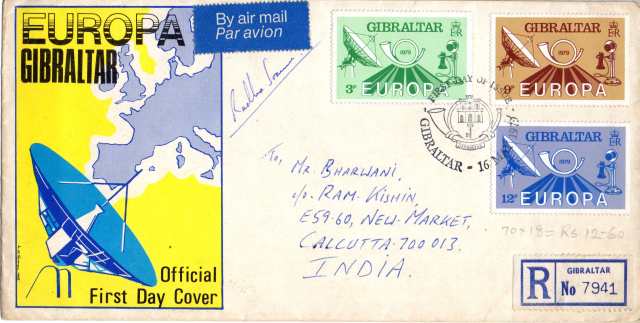 EUROPA
GIBRALTAR
By air mail
Par avion
GIBRALTAR
1979
3p
EUROPA
GIBRALTAR
1979
9p
EUROPA
GIBRALTAR
1979
12p
EUROPA
FIRST DAY OF ISSUE
GIBRALTAR - 16 MAY 1979
To,
Mr. BHARWANI,
c/o. RAM. KISHIN,
E59-60, NEW. MARKET,
CALCUTTA-700 013.
INDIA.
70×18= Rs 12-60
Official
First Day Cover
R
GIBRALTAR
No 7941